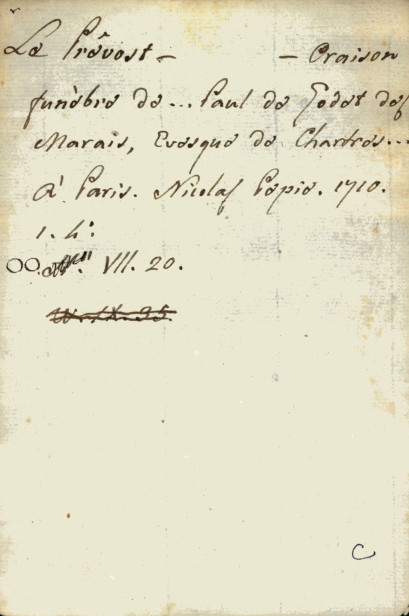 Le Prêvost - - Oraison
funèbre de ... Paul de Godet des
Marais, Evesque de Chartres...
A' Paris. Nicolas Pepie. 1710.
1. 4º
VII. 20.
C